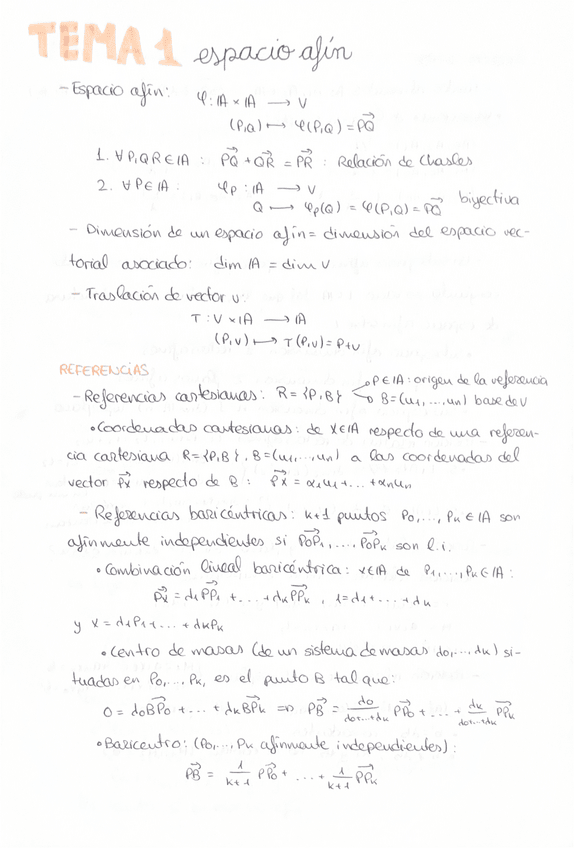 TEMA 1 espacio afín
- Espacio afín: φ: A × A → V
(P,Q) ↦ φ(P,Q) = PQ→
1. ∀P,Q,R ∈ A : PQ→ + QR→ = PR→ : Relación de Chasles
2. ∀P ∈ A : φp : A → V
Q ↦ φp(Q) = φ(P,Q) = PQ→ biyectiva
- Dimensión de un espacio afín = dimensión del espacio vec-
torial asociado: dim A = dim V
- Traslación de vector v:
T : V × A → A
(P,v) ↦ T(P,v) = P+v
REFERENCIAS
- Referencias cartesianas: R = {P,B} P ∈ A : origen de la referencia
B = (u1, ..., un) base de V
• Coordenadas cartesianas: de X ∈ A respecto de una referen-
cia cartesiana R = {P,B}, B = (u1, ..., un) a las coordenadas del
vector PX→ respecto de B : PX→ = α1u1 + ... + αnun
- Referencias baricéntricas: k+1 puntos P0, ..., Pk ∈ A son
afínmente independientes si P0P1→, ..., P0Pk→ son l.i.
• Combinación lineal baricéntrica: x ∈ A de P1, ..., Pk ∈ A :
PX→ = d1PP1→ + ... + dkPPk→, 1 = d1 + ... + dk
y X = d1P1 + ... + dkPk
• Centro de masas (de un sistema de masas d0, ..., dk) si-
tuadas en P0, ..., Pk, es el punto B tal que:
0 = d0BP0→ + ... + dkBPk→ => PB→ = d0/(d0+...+dk) PP0→ + ... + dk/(d0+...+dk) PPk→
• Baricentro: (P0, ..., Pk afínmente independientes) :
PB→ = 1/(k+1) PP0→ + ... + 1/(k+1) PPk→